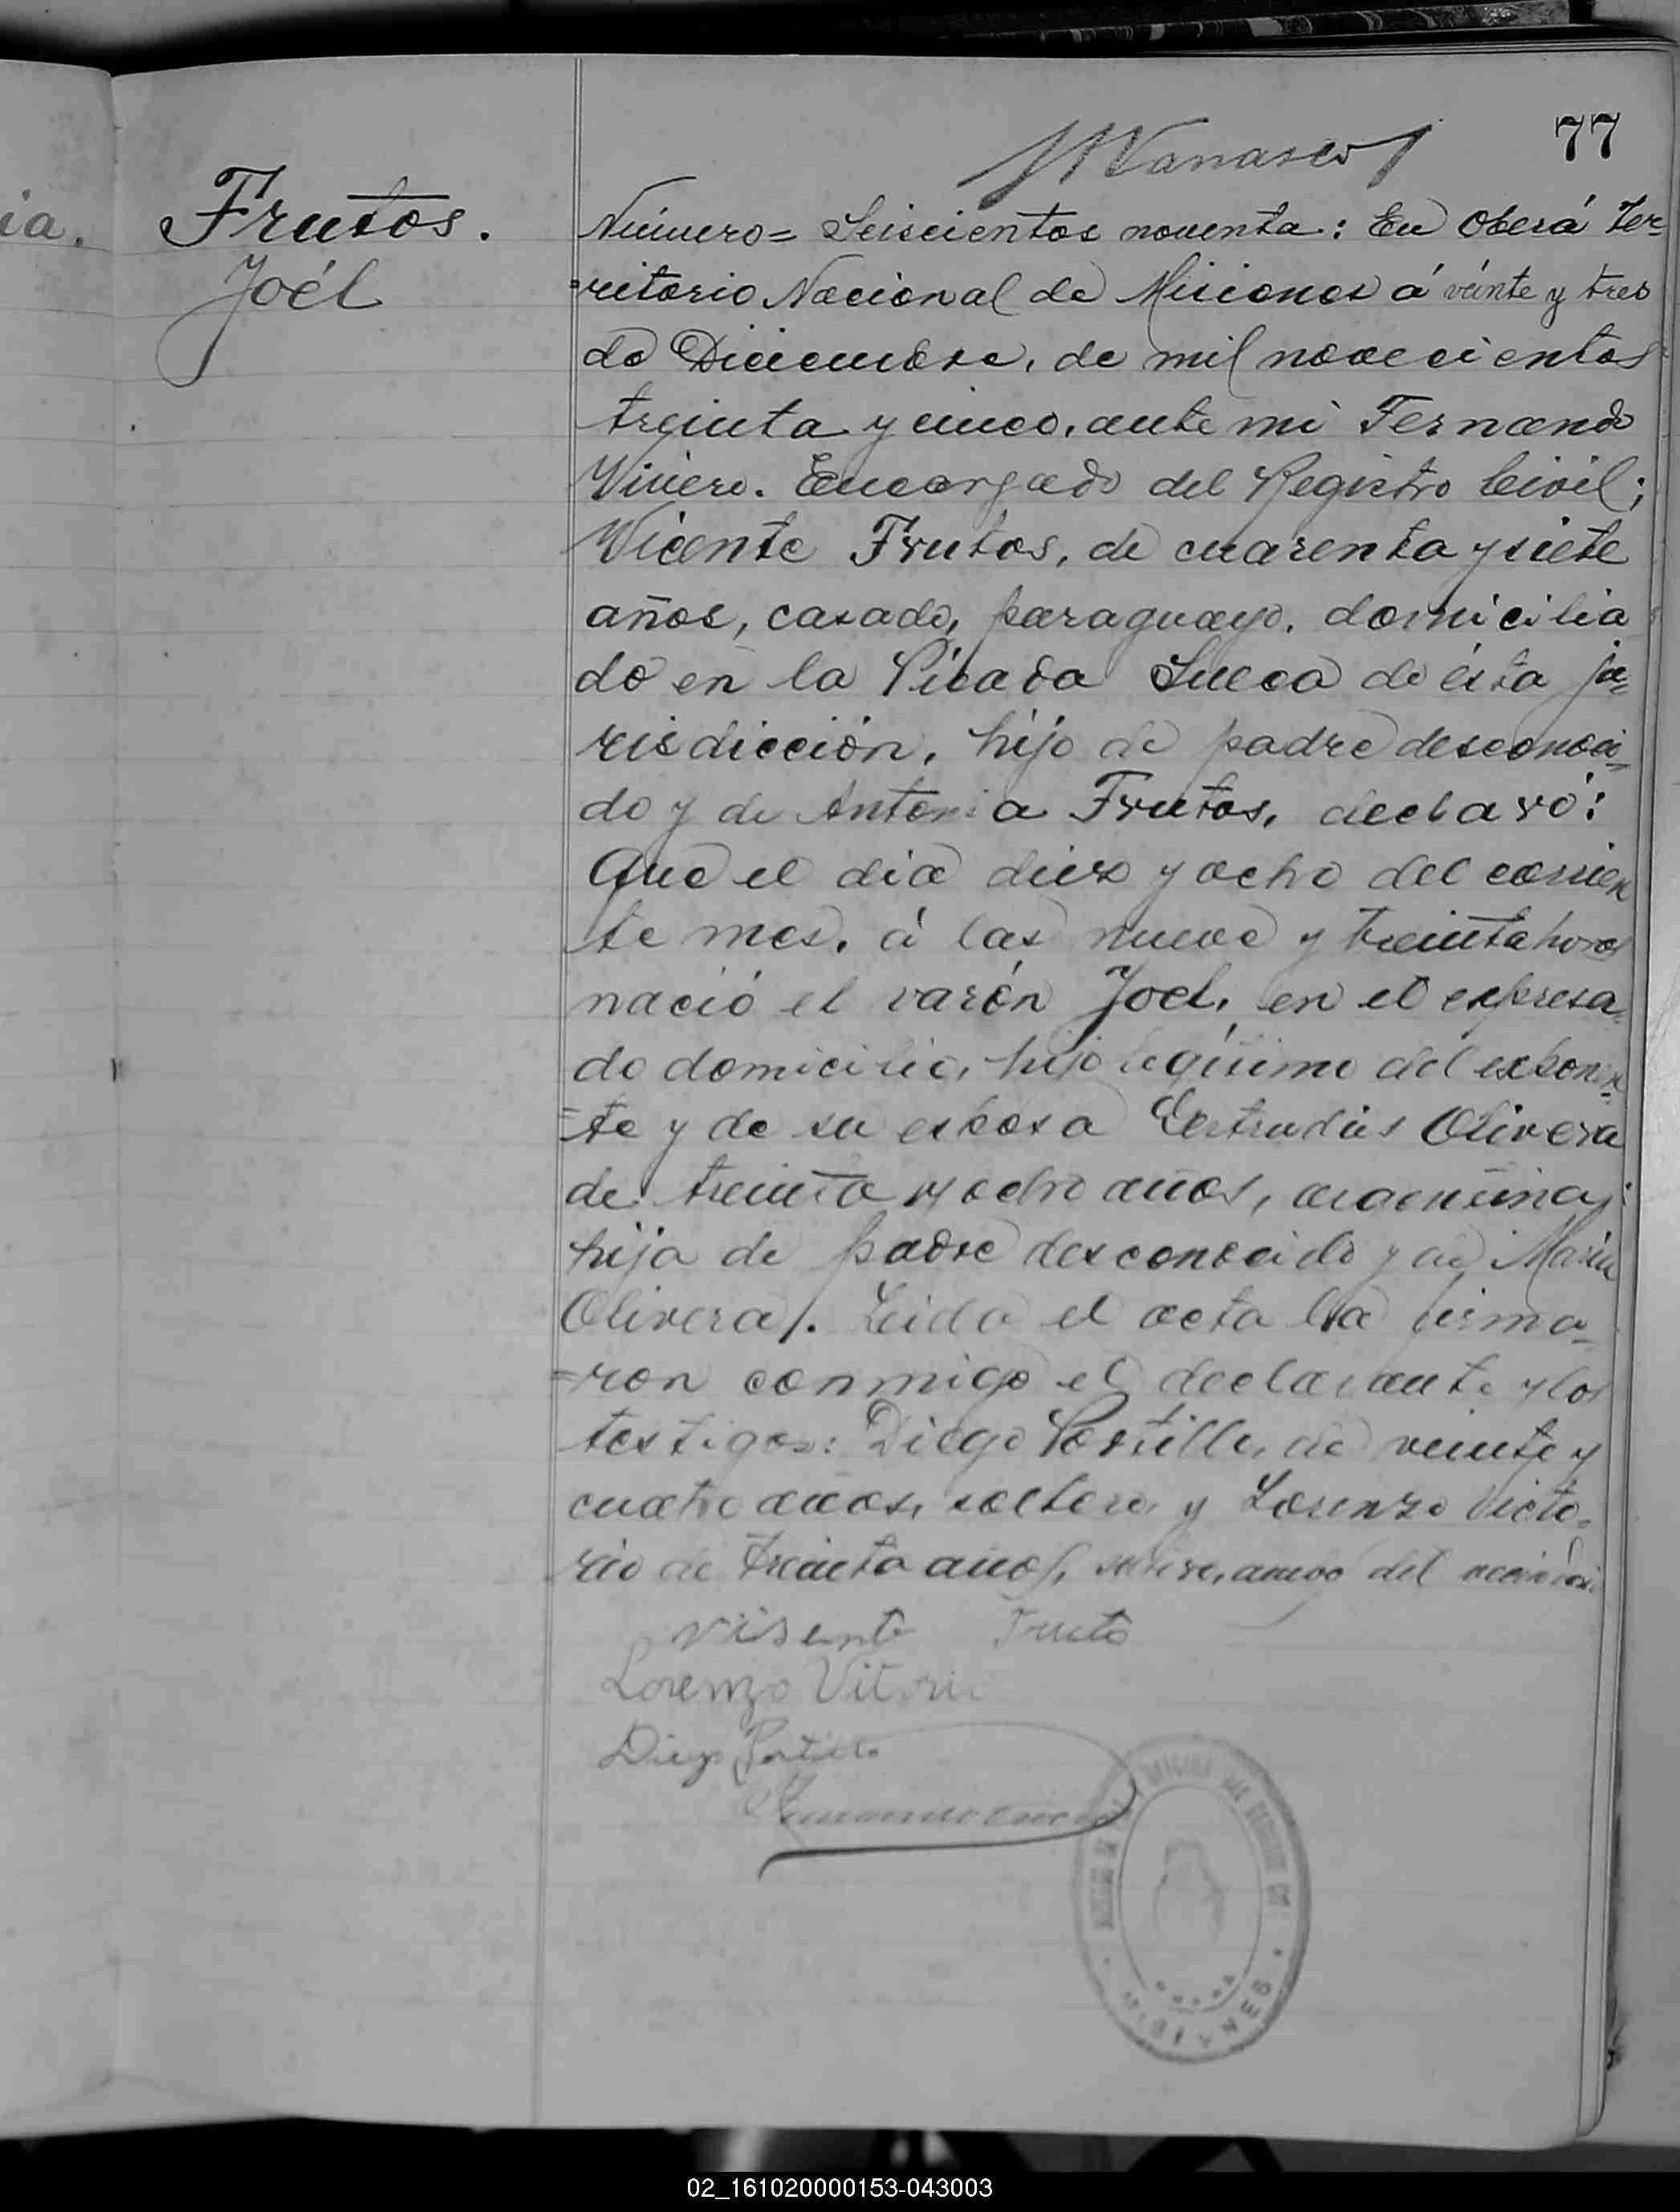 77
ia.
Frutos.
Joél
Número = Seiscientos noventa: En Oberá Ter=
=ritorio Nacional de Misiones á veinte y tres
de Diciembre, de mil novecientos
treinta y cinco, ante mi Fernando
Vivero. Encargado del Registro Civil;
Vicente Frutos, de cuarenta y siete
años, casado, paraguayo, domicilia
do en la Picada Sueca de ésta ju=
risdicción, hijo de padre desconoci=
do y de Antonia Frutos, declaró:
Que el dia diez y ocho del corrien
te mes, á las nueve y treinta horas
nació el varón Joel, en el expresa=
do domicilio, hijo legitimo del exponen=
=te y de su esposa Gertrudis Olivera
de treinta y ocho años, argentina,
hija de padre desconocido y de María
Olivera. Leida el acta la firma=
=ron conmigo el declarante y los
testigos: Diego Portillo, de veinte y
cuatro años, soltero, y Lorenzo Victo=
rio de treinta años, del
Visente Fruto
Lorenzo Vitorio
Diego Portillo
MISIONES
02_161020000153-043003